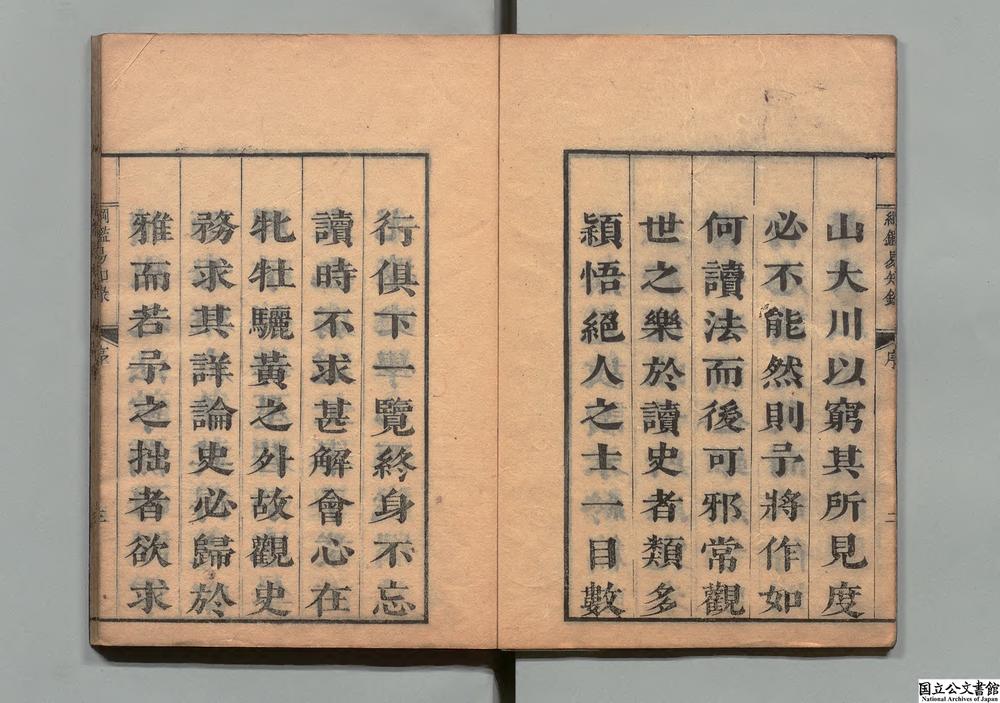 綱鑑易知錄
序
二
山大川以窮其所見度
必不能然則予將作如
何讀法而後可邪常觀
世之樂於讀史者類多
穎悟絕人之士一目數
行俱下一覽終身不忘
讀時不求甚解會心在
牝牡驪黃之外故觀史
務求其詳論史必歸於
雅而若予之拙者欲求
綱鑑易知錄
序
三
国立公文書館
National Archives of Japan